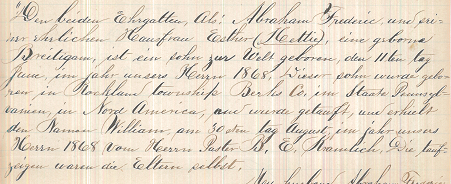 "Den beiden Ehrgatten, Als: Abraham Frederic, und sei-
ner Ehrlichen Hausfrau Esther (Hettie), eine geborne
Breidigam, ist ein sohn zur Welt geboren, den 11ten tag
June, im jahr unsers Herrn 1868. Dieser sohn wurde gebo-
ren in Rockland township Berks Co. im Staate Pennsyl-
vanien, in Nord America, und wurde getauft, und erhielt
den Namen William, am 30sten tag August, im jahr unsers
Herrn 1868 vom Herrn Pastor B. E. Kramlich. Die tauf-
zeigen waren die Eltern selbst.
husband Abraham